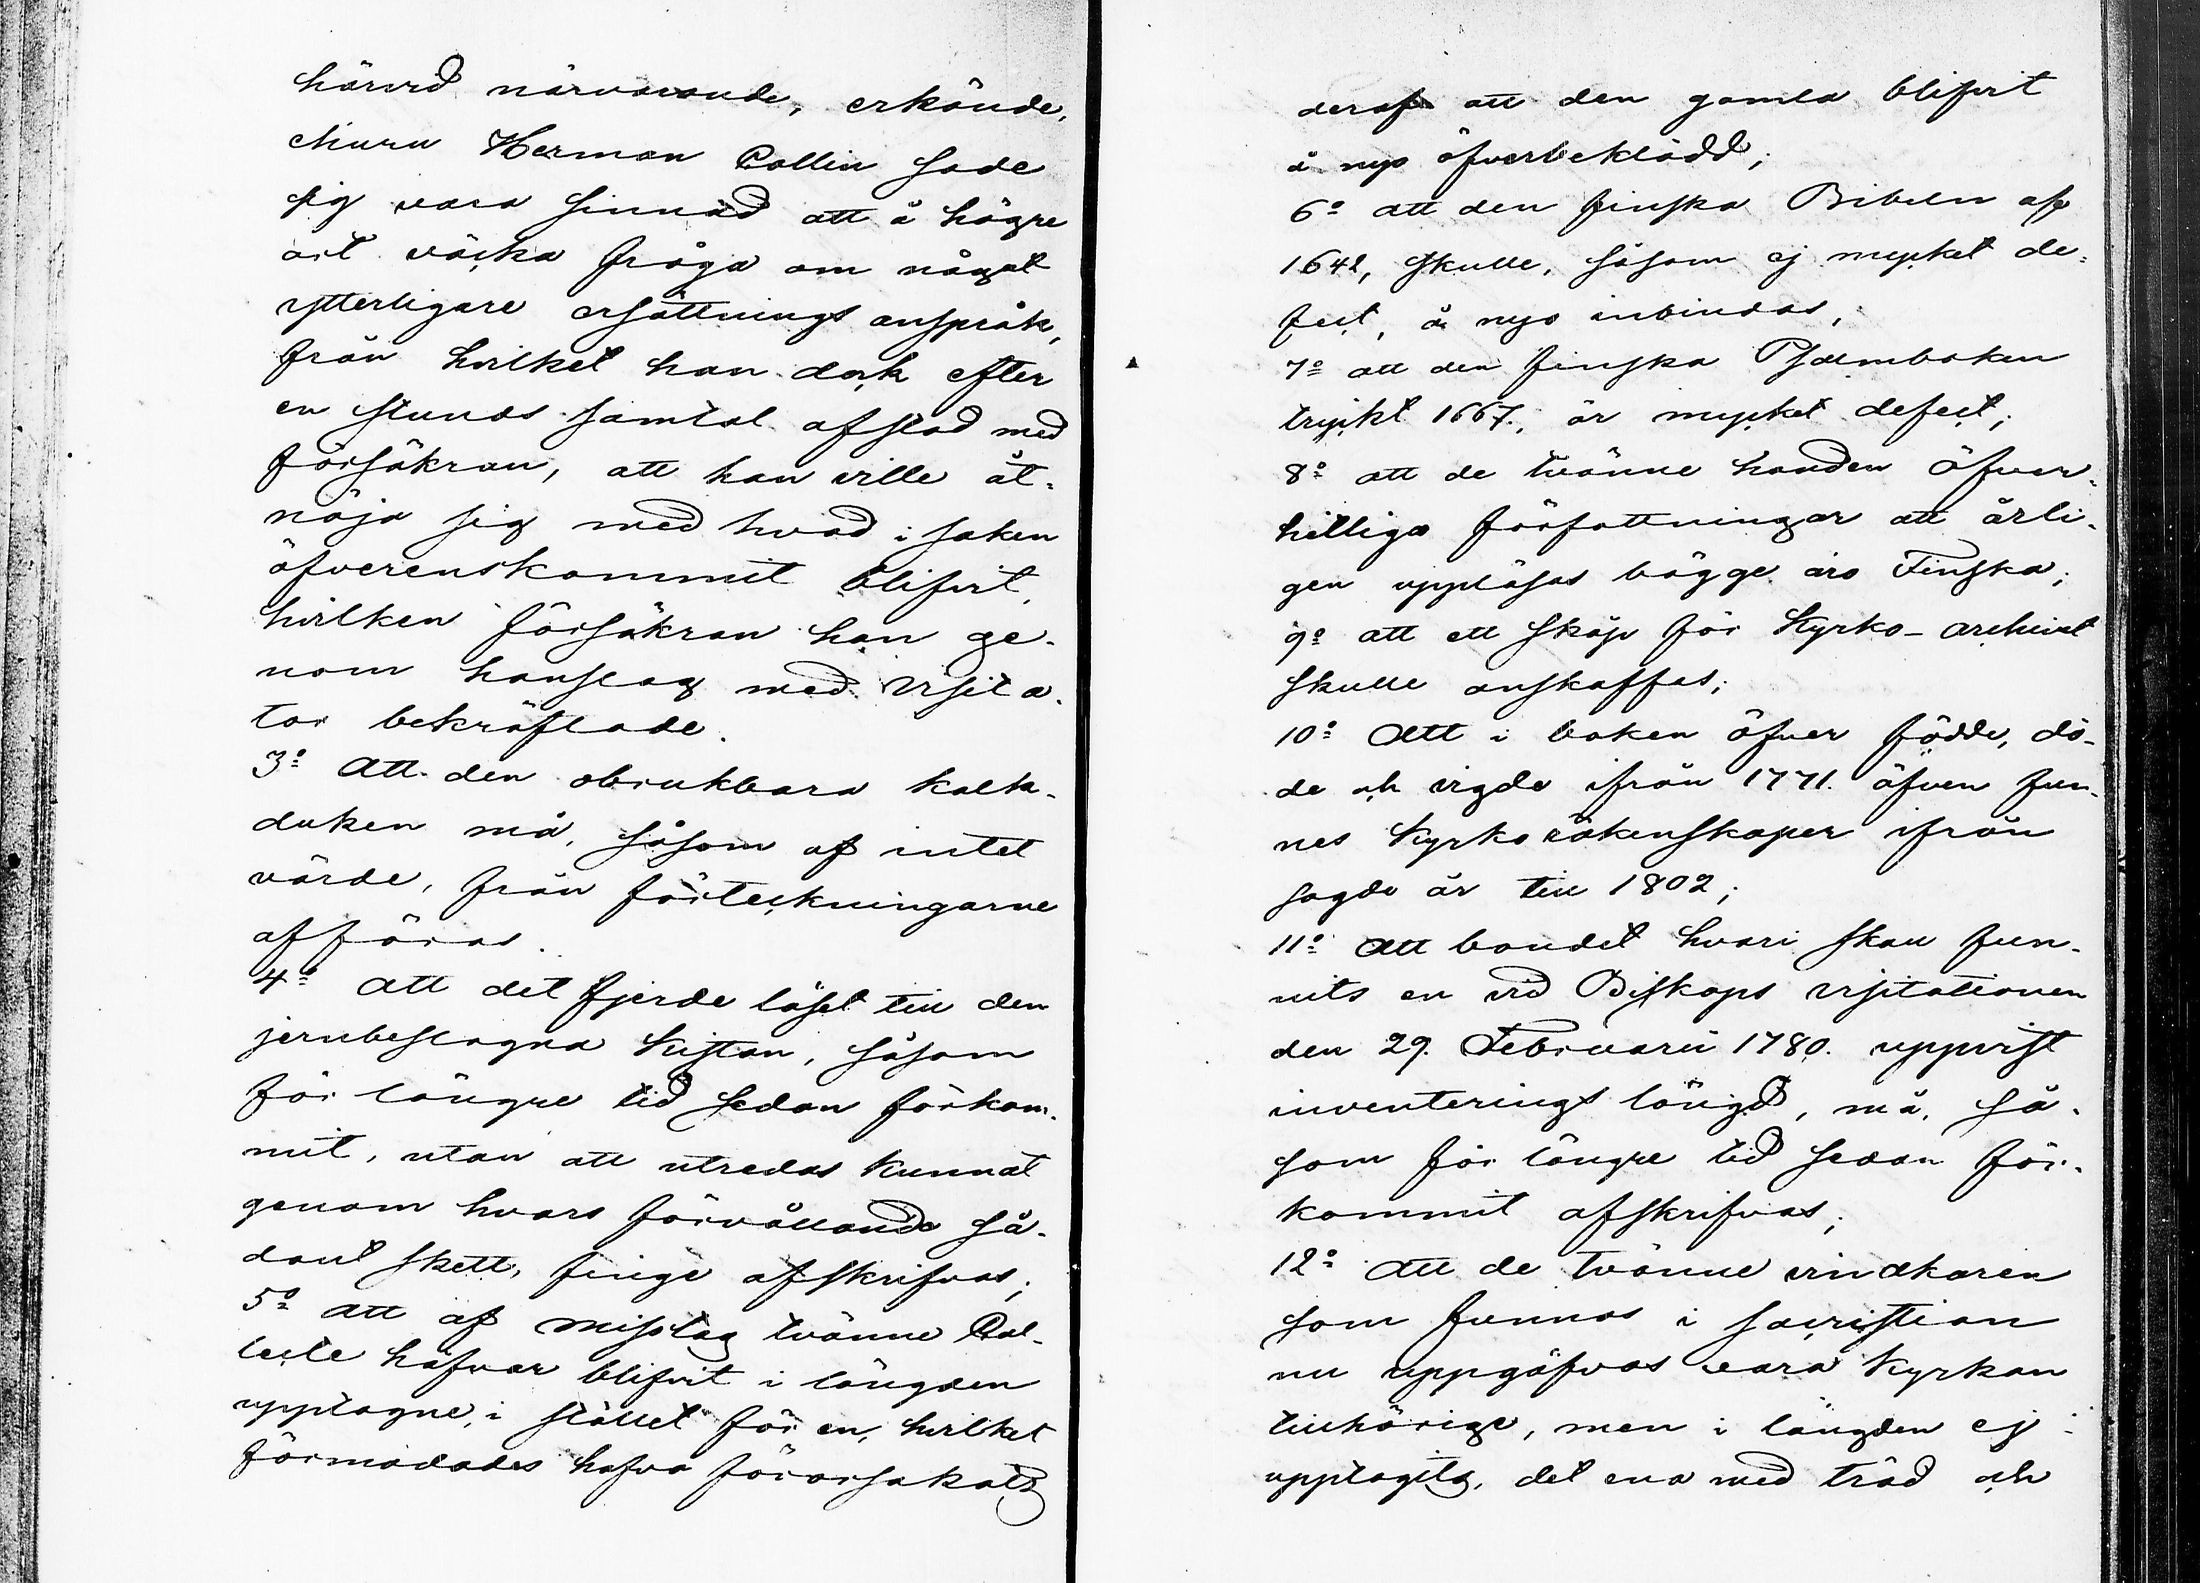 härvid närvarande, erkände,
ehuru Herman Collin sade
sig vara sinnad att å högre
ort väcka fråga om något
ytterligare ersättnings anspråk,
från hvilket han dock efter
en stunds samtal afstod med
försäkran, att han ville åt-
nöja sig med hvad i saken
öfverenskommit blifvit,
hvilken försäkran han ge-
nom handslag med Visita-
tor bekräftade.
3:o Att den obrukbara kalk-
duken må, såsom af intet
värde, från förteckningarne
afföras.
4:o Att det fjerde låset till den
jernbeslagna Kistan, såsom
för längre tid sedan förkom-
mit, utan att utredas kunnat
genom hvars förvållande så-
dant skett, finge afskrifvas;
5:o Att af misstag tvänne Col-
lecte håfvar blifvit i längden
upptagne, i stället för en, hvilket
förmodades hafva förorsakats
deraf att den gamla blifvit
å nyo öfverbeklädd;
6:o att den finska Bibeln af
1642, skulle, såsom ej mycket de-
fect, å nyo inbindas,
7:o att den finska Psalmboken
tryckt 1667, är mycket defect;
8:o att de tvänne banden Öfver-
heltliga författningar att årli-
gen uppläsas bägge äro Finska;
9:o att ett skåp för Kyrko-archivet
skulle anskaffas;
10:o Att i boken öfver födde, dö-
de och vigde ifrån 1771. äfven fun-
nes Kyrko räkenskaper ifrån
sagde år till 1802;
11:o Att bandet hvari skall fun-
nits en vid Biskops visitationen
den 29. Februarii 1780. uppvist
inventerings längd, må, så-
som för längre tid sedan för-
kommit afskrifvas;
12:o Att de tvänne vindkaren
som funnos i sacristian
nu uppgåfvos vara Kyrkan
tillhörige, men i längden ej
upptagits, det ena med träd och